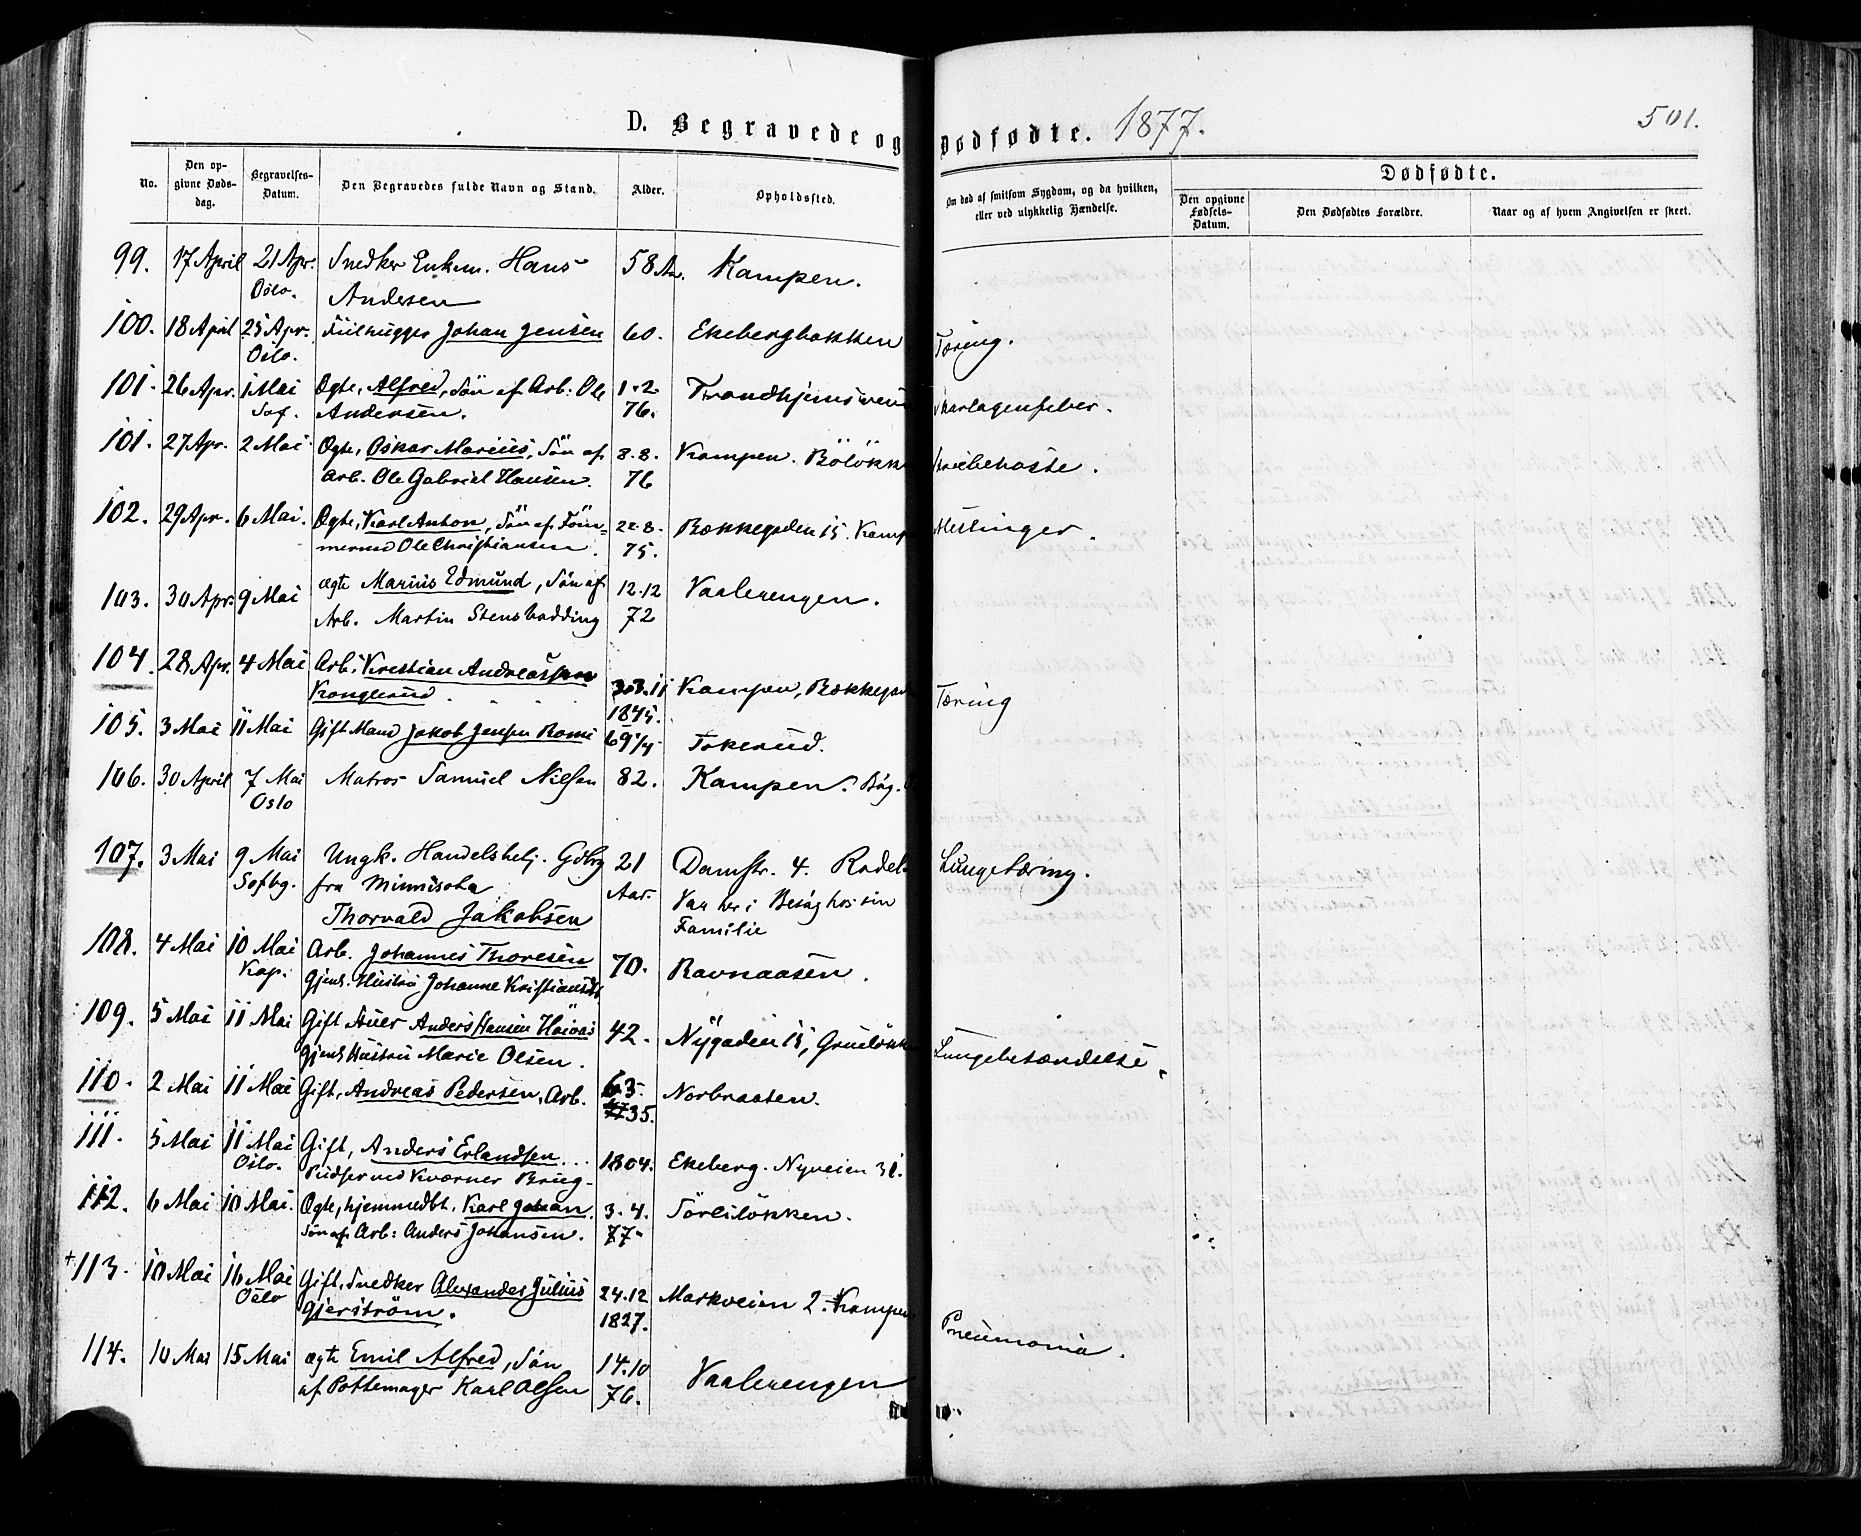 D. Begravede og Dødfødte. 1877. 501.
No.
Den opgivne Døds-dag.
Begravelses-Datum.
Den Begravedes fulde Navn og Stand.
Alder.
Opholdssted.
Om død af smitsom Sygdom, og da hvilken, eller ved ulykkelig Hændelse.
Dødfødte.
Den opgivne Fødsels-Datum.
Den Dødfødtes Forældre.
Naar og af hvem Angivelsen er skeet.
99. 17 April 21 Apr. Snedker Enkem. Hans 58 Aar. Kampen.
Oslo. Andersen
100. 18 April 25 Apr. Filhugger Johan Jensen 60. Ekebergbakken Tæring.
Oslo.
101. 26 Apr. 1 Mai Ægte, Alfred, Søn af Arb: Ole 1-2- Trondhjemsvei Skarlagenfeber.
Sof. Andersen. 76.
101. 27 Apr. 2 Mai Ægte, Oskar Marius, Søn af 8.8. Kampen. Bölökk Strubehoste.
Arb. Ole Gabriel Hansen. 76
102. 29 Apr. 6 Mai. Ægte, Karl Anton, Søn af Töm= 22.8. Bækkegaden 15. Kamp Meslinger.
mermd Ole Christiansen. 75.
103. 30 Apr. 9 Mai ægte Marius Edmund, Søn af 12.12 Vaalerengen.
Arb. Martin Stensbadding 72
104. 28 Apr. 4 Mai Arb. Kristian Andreassen 3.11 Kampen, Bækkega Tæring
Konglerud. 1845.
105. 3 Mai 11 Mai Gift Mand Jakob Jensen Romi 69 1/4 Tokerud.
106. 30 April 7 Mai Matros Samuel Nilsen 82. Kampen. Bög.
Oslo
107. 3 Mai 9 Mai Ungk. Handelsbetj. Gdbrg 21 Damstr. 4. Rodel Lungetæring.
Sofbg. fra Minnisota Aar. Var her i Besøg hos sin
Thorvald Jakobsen Familie
108. 4 Mai 10 Mai Arb. Johannes Thoresen 70. Ravnaasen.
Kap. Gjenl. Hustru Johanne Kristiansdt
109. 5 Mai 11 Mai Gift Anders Hansen Höivas 42. Nygaden 15, Grueløkk Lungebetændelse.
Gjenl Hustru Marie Olsen.
110. 2 Mai 11 Mai Gift, Andreas Pedersen, Arb. 6.3- Norbraaten.
35.
111. 5 Mai 11 Mai Gift, Anders Erlandsen... 1804. Ekeberg. Nyveien 31.
Oslo. Pudser ved Kværner Brug-
112. 6 Mai 10 Mai. Ægte, hjemmedbt. Karl Johan. 3.4. Sörliløkken.
Søn af Arb: Anders Johansen. 77-
+113. 10 Mai 16 Mai Gift, Snedker Alexander Julius 24.12 Markveien 2. Kampen
Oslo Gjerström. 1827.
Pneumonia.
114. 10 Mai 15 Mai ægte Emil Alfred, Søn 14.10 Vaalerengen
af Pottemager Karl Olsen 76.